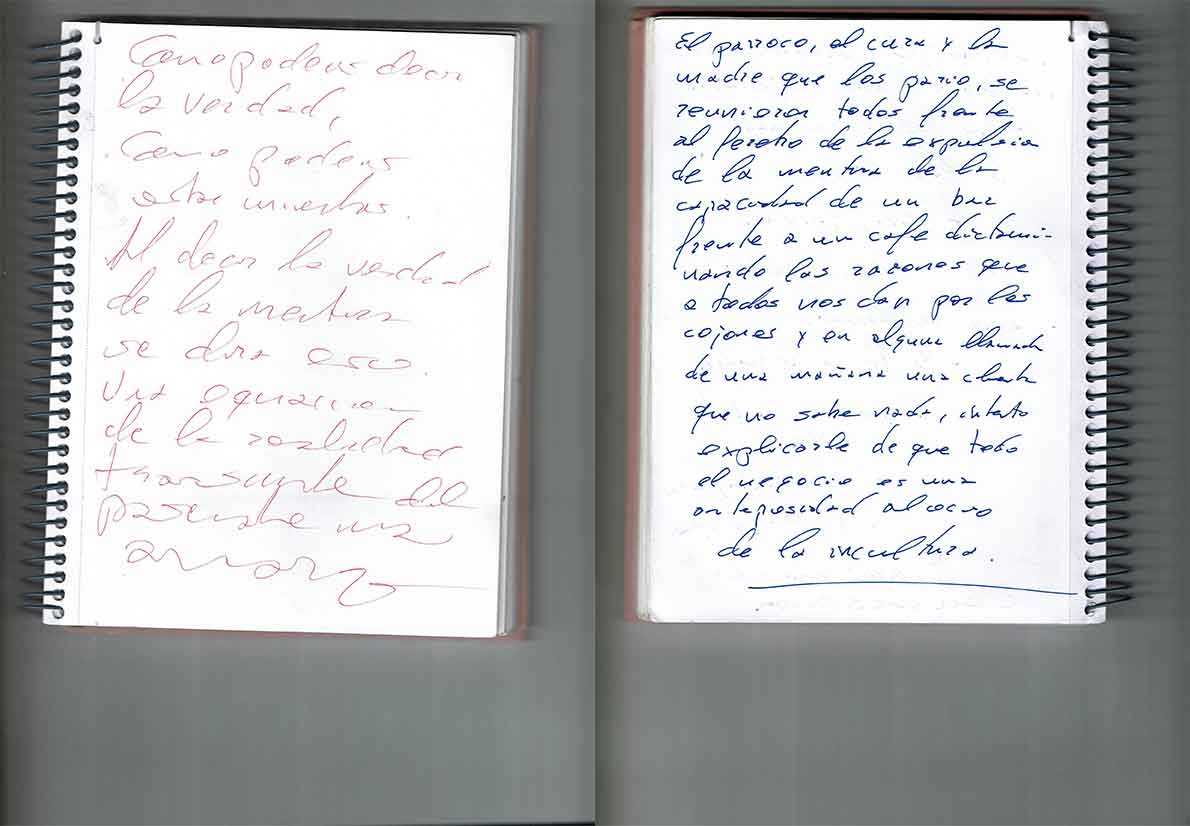 Como podeis decir
la verdad,
Como podeis
estar muertos.
Al decir la verdad
de la mentira
se dira eso.
Una equacion
de la realidad
transcurre del
una
El parroco, el cura y la
madre que los pario, se
reunieron todos frente
al feretro de la expulsion
de la mentira de la
capacidad de un bar
frente a un cafe dictami-
nando las razones que
a todos nos dan por los
cojones y en alguna llamada
de una mañana una
que no sabe nada, intento
explicarle de que todo
el negocio es una
anteposidad al
de la incultura.